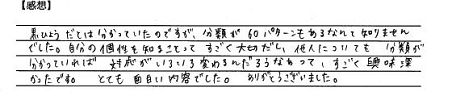 【感想】
黒ひょうだとは分かっていたのですが、分類が60パターンもあるなんて知りません
でした。自分の個性を知ることってすごく大切だし、他人についても分類が
分かっていれば対応がいろいろ変わるんだろうなもって、すごく興味深
かったですね とても面白い内容でした。ありがとうございました。